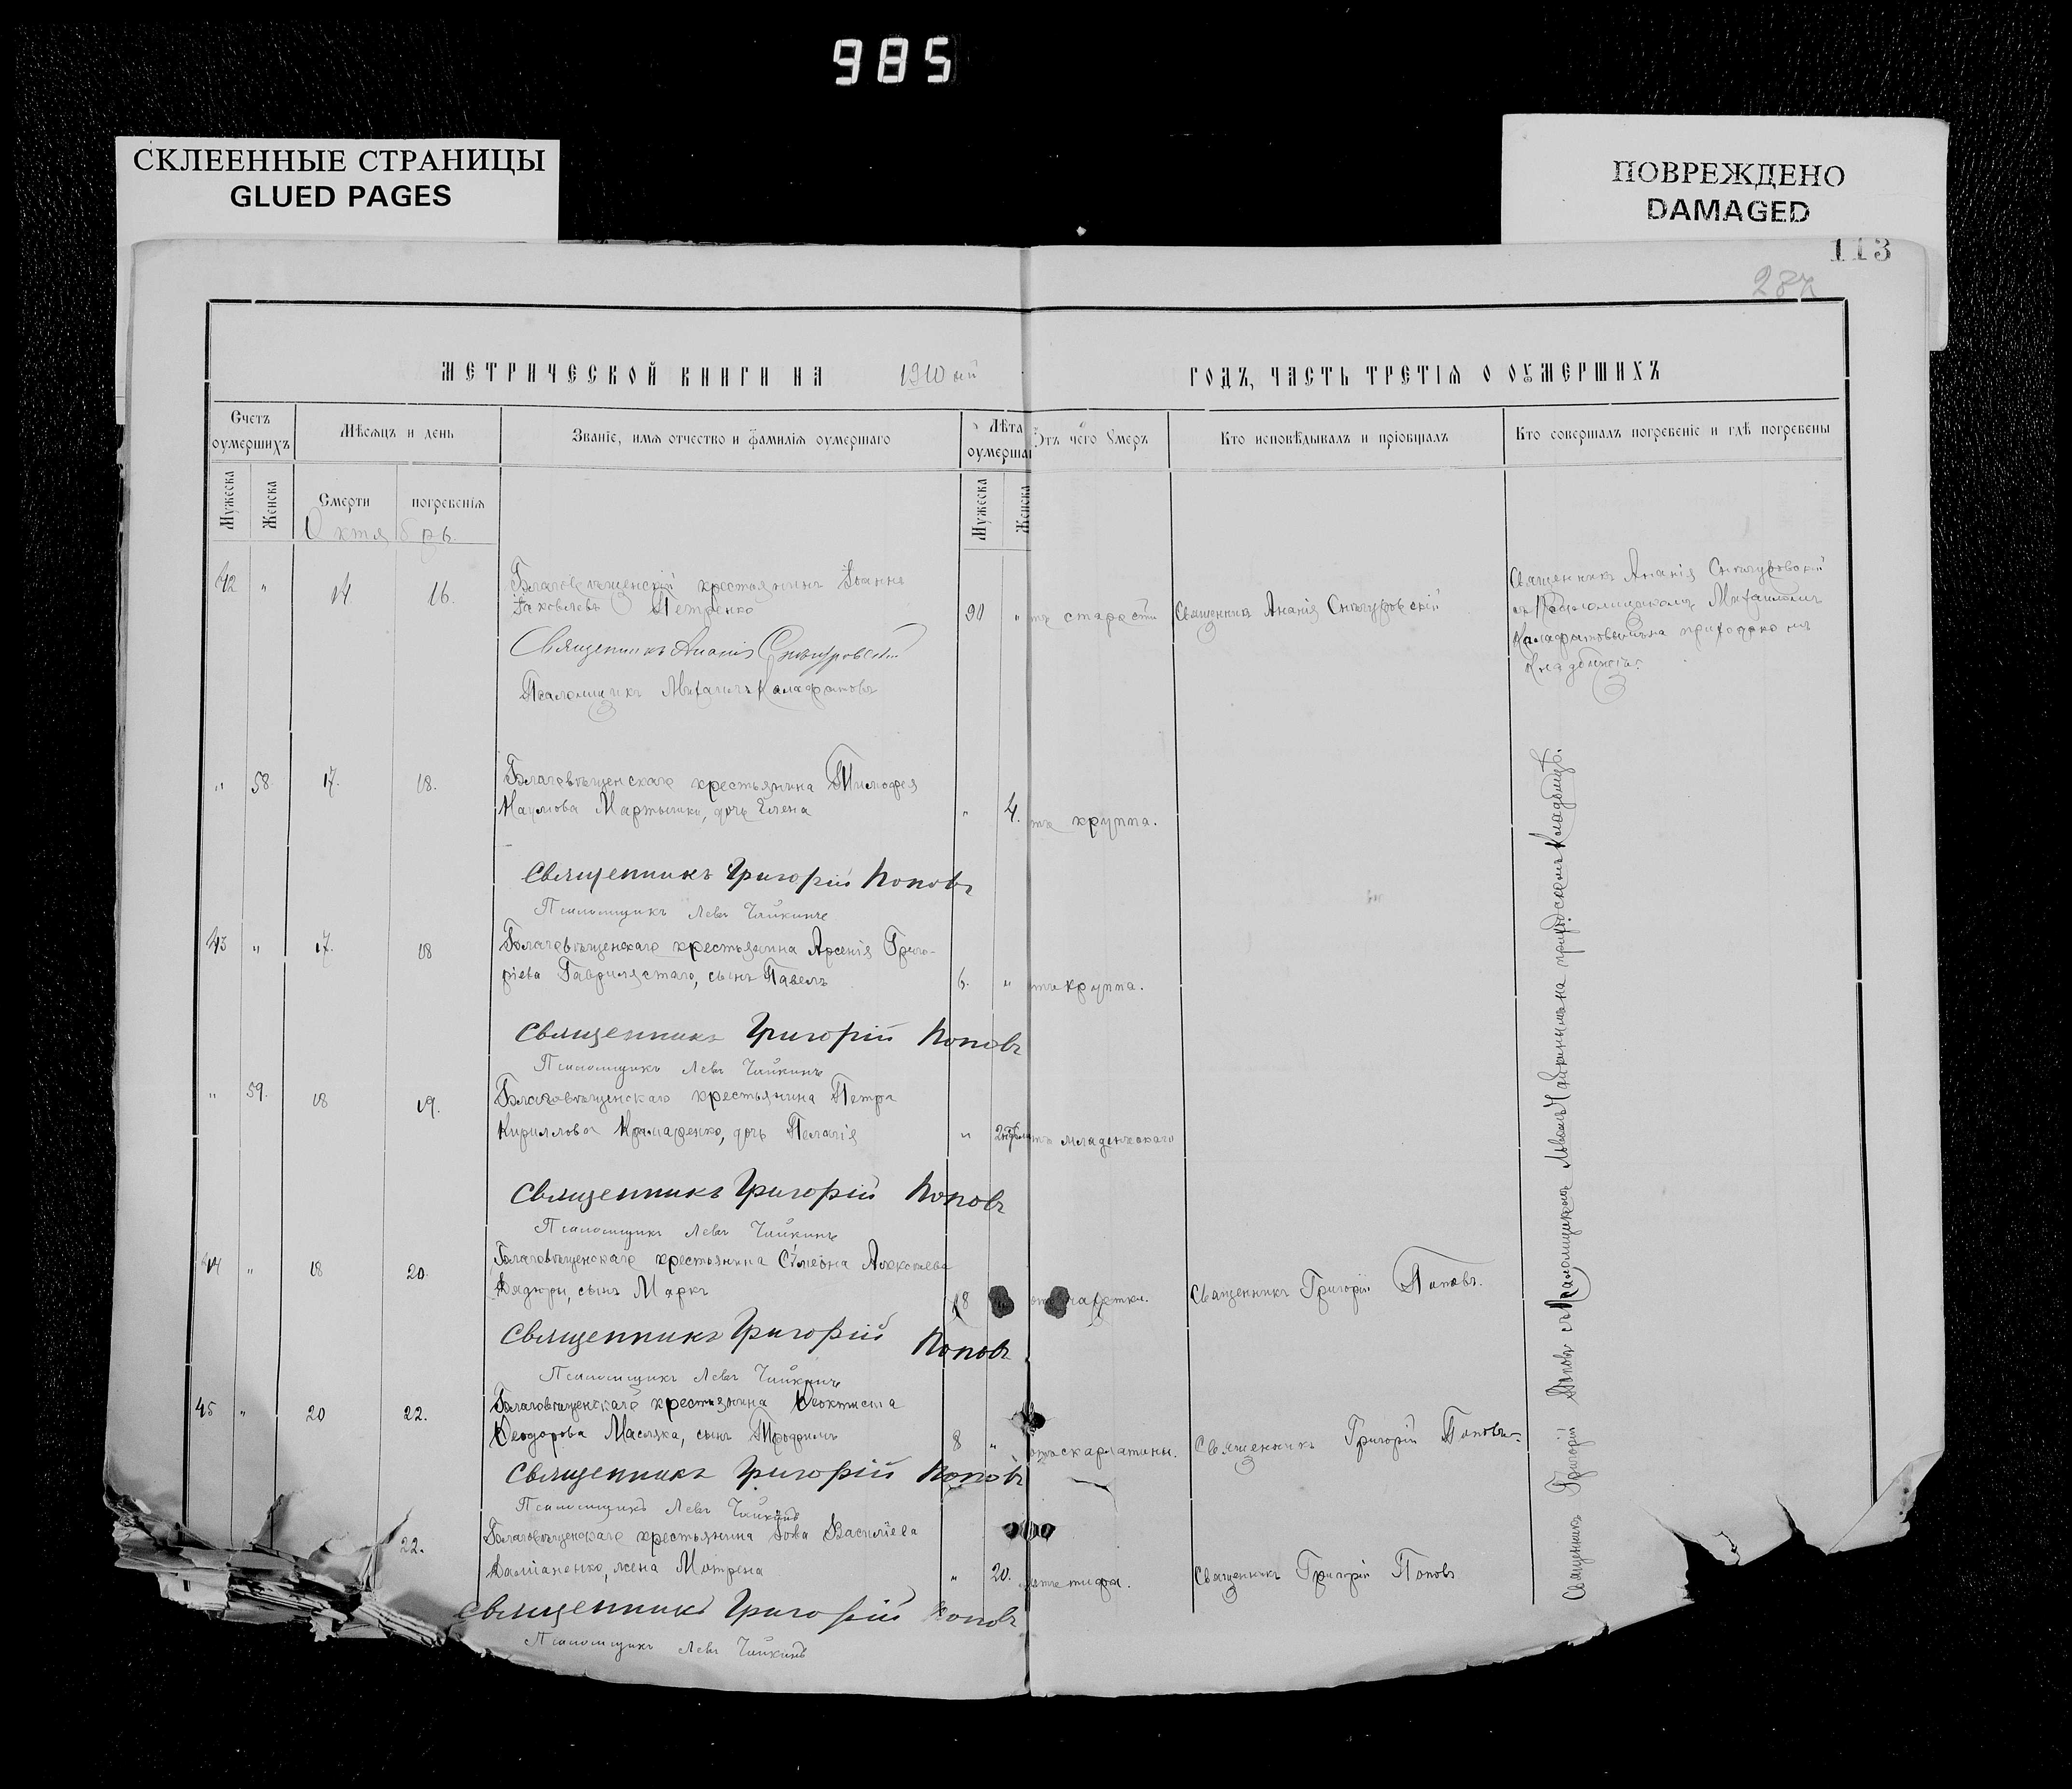 985
СКЛЕЕННЫЕ СТРАНИЦЫ
GLUED PAGES
ПОВРЕЖДЕНО
DAMAGED
113
287
МЕТРИЧЕСКОЙ КНИГИ НА 1910 ый ГОДЪ, ЧАСТЬ ТРЕТІѦ О ОУМЕРШИХЪ
Счетъ оумершихъ
Мѣсяцъ и день
Званіе, имѧ отчество и фамиліѧ оумершаго
Лѣта оумерша
Отъ чего умеръ
Кто исповѣдывалъ и пріобщалъ
Кто совершалъ погребеніе и гдѣ погребены
Мужеска
Женска
Смерти
погребеніѧ
Мужеска
Женска
Октябрь.
42 " 14. 16. Благовѣщенскій крестьянинъ Іоаннъ
Іаковлевъ Петренко 90 " тъ старости Священникъ Ананія
Священникъ Ананія
Псаломщикъ Михаилъ Калафатовъ
Священникъ Ананія
съ Псаломщикомъ Михаиломъ
Калафатовымъ на приходскомъ
кладбищѣ.
" 58. 17. 18. Благовѣщенскаго крестьянина Тимофея
Наумова Мартыненко, дочь Елена " 4. тъ круппа.
Священникъ Григорій Поповъ
Псаломщикъ Левъ Чайкинъ
43 " 17. 18 Благовѣщенскаго крестьянина Арсенія Григо-
ріева сынъ Павелъ 6. " отъ круппа.
Священникъ Григорій Поповъ
Псаломщикъ Левъ Чайкинъ
" 59. 18 19. Благовѣщенскаго крестьянина Петра
Кириллова Крамаренко, дочь Пелагія " 2 недѣли тъ младенческаго
Священникъ Григорій Поповъ
Псаломщикъ Левъ Чайкинъ
44 " 18 20. Благовѣщенскаго крестьянина Сѵмеона Алексѣева
сынъ Маркъ 18 отъ чахотки. Священникъ Григорій Поповъ.
Священникъ Григорій Поповъ
Псаломщикъ Левъ Чайкинъ
45 " 20 22. Благовѣщенскаго крестьянина Ѳеоктиста
Ѳеодорова Масляка, сынъ Трофимъ 8 " отъ скарлатины. Священникъ Григорій Поповъ.
Священникъ Григорій Поповъ
Псаломщикъ Левъ Чайкинъ
22. Благовѣщенскаго крестьянина Іова Василіева
Даміаненко, жена Мотрена " 20. отъ тифа. Священникъ Григорій Поповъ
Священникъ Григорій Поповъ
Псаломщикъ Левъ Чайкинъ
Священникъ Григорій Поповъ съ Псаломщикомъ Львомъ Чайкинымъ на приходскомъ кладбищѣ.